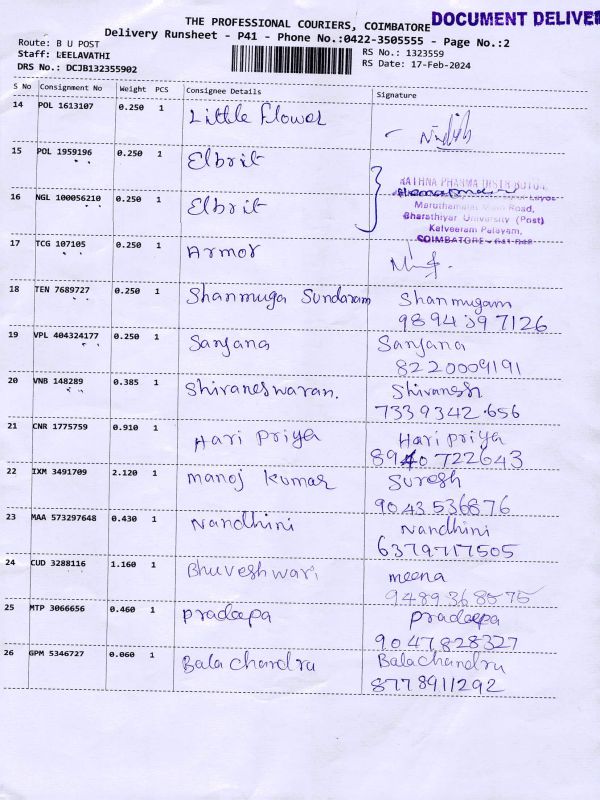 THE PROFESSIONAL COURIERS, COIMBATORE
DOCUMENT DELIVE
Delivery Runsheet - P41 - Phone No.:0422-3505555 - Page No.:2
Route: B U POST
Staff: LEELAVATHI
DRS No.: DCJB132355902
RS No.: 1323559
RS Date: 17-Feb-2024
S No Consignment No Weight PCS Consignee Details Signature
14 POL 1613107 0.250 1 Little Flower
15 POL 1959196 0.250 1 Elbrit
RATHNA PHARMA DISTRIBUTOR
16 NGL 100056210 0.250 1 Elbrit
Maruthamalai Main Road,
Bharathiyar University (Post)
Kalveeram Palayam,
COIMBATORE - 641 046
17 TCG 107105 0.250 1 Armor
18 TEN 7689727 0.250 1 Shanmuga Sundaram Shanmugam
9894397126
19 VPL 404324177 0.250 1 Sanjana Sanjana
8220009191
20 VNB 148289 0.385 1 Shivaneswaran. Shivanesh
7339342656
21 CNR 1775759 0.910 1 Hari Priya Hari priya
8940722643
22 IXM 3491709 2.120 1 manoj kumar Suresh
9043536876
23 MAA 573297648 0.430 1 Nandhini Nandhini
6379717505
24 CUD 3288116 1.160 1 Bhuveshwari meena
9489368575
25 MTP 3066656 0.460 1 pradeepa pradeepa
9047828327
26 GPM 5346727 0.060 1 Bala chandru Balachandru
8778911292